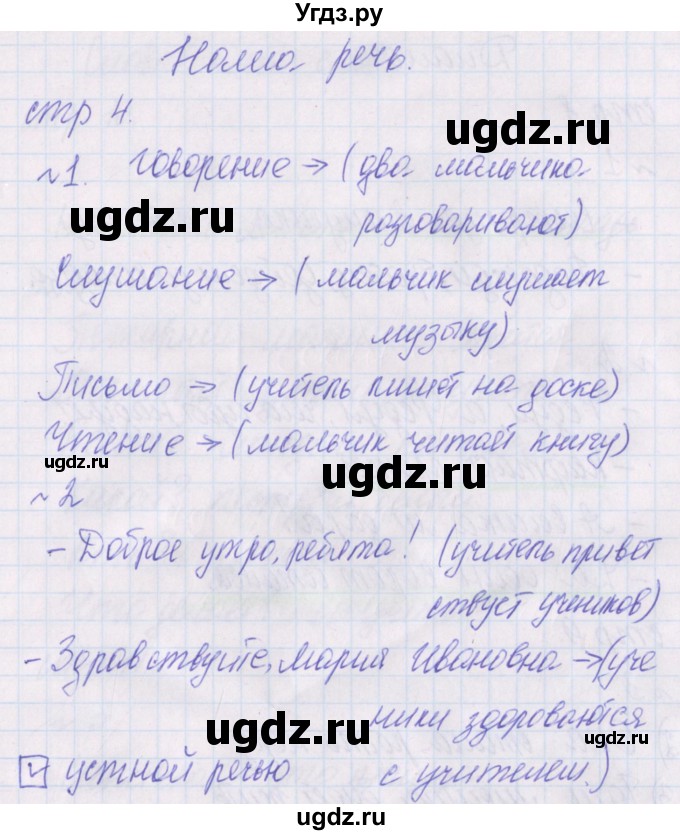 Угдз.ру
Наша речь.
стр 4.
№1. Говорение → (два мальчика
ugdz.ru
ugdz.ru
разговаривают)
Слушание → (мальчик слушает
музыку)
Письмо → (учитель пишет на доске)
Чтение → (мальчик читает книгу)
ugdz.ru
ugdz.ru
№2
- Доброе утро, ребята! (учитель привет
ствует учеников)
- Здравствуйте, Мария Ивановна → (уче
ники здороваются
ugdz.ru
ugdz.ru
устной речью с учителем.)
ugdz.ru